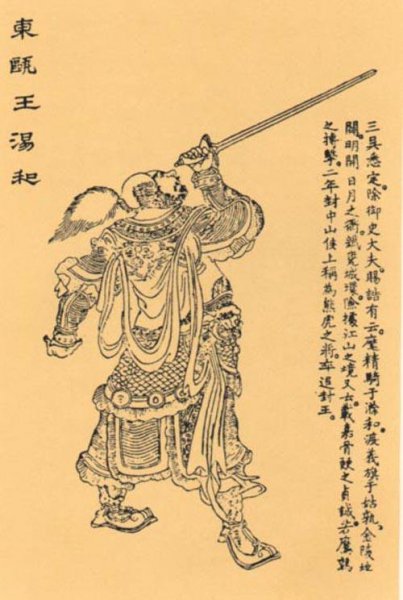 東甌王湯和
三吳悉定。除御史大夫。賜誥有云。麾精騎于滁和。渡義旗于姑孰。金陵地
闢。明開日月之衢。鐵甕城。險據江山之境。又云。載嘉骨鯁之貞誠。若鷹鸇
之搏擊。二年封中山侯。上稱為熊虎之將。卒追封王。